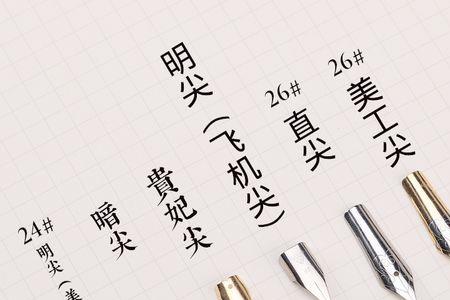 24# 明尖(美
暗尖
貴妃尖
明尖(飞机尖)
26# 直尖
26# 美工尖